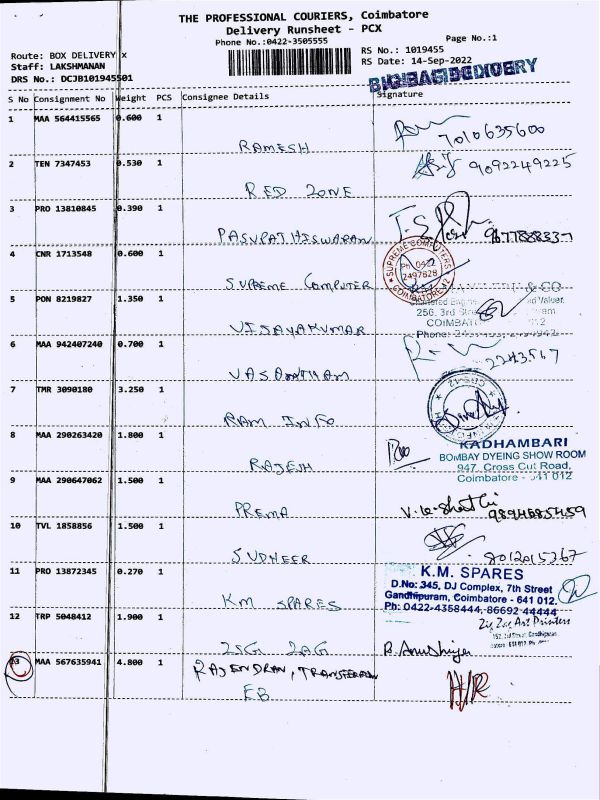 THE PROFESSIONAL COURIERS, Coimbatore
Delivery Runsheet - PCX
Phone No.:0422-3505555
Page No.:1
Route: BOX DELIVERY x
RS No.: 1019455
Staff: LAKSHMANAN
RS Date: 14-Sep-2022
DRS No.: DCJB101945501
S No Consignment No Weight PCS Consignee Details Signature
1 MAA 564415565 0.600 1
RAMESH 7010635600
2 TEN 7347453 0.530 1
RED ZONE 9092249225
3 PRO 13810845 0.390 1
PASUPATHISWARAN
4 CNR 1713548 0.600 1
SUPREME COMPUTER
SUPREME COMPUTERS
Ph 0422
2497828
COIMBATORE-12
5 PON 8219827 1.350 1
& CO
256, 3rd
VIJAYAKUMAR
6 MAA 942407240 0.700 1
VASANTHAM
7 TMR 3090180 3.250 1
RAM INFO
8 MAA 290263420 1.800 1
RAJESH
KADHAMBARI
BOMBAY DYEING SHOW ROOM
947, Cross Cut Road,
Coimbatore - 641 012
9 MAA 290647062 1.500 1
PREMA
10 TVL 1858856 1.500 1
SUDHEER 8012015367
11 PRO 13872345 0.270 1
KM SPARES
K.M. SPARES
D.No: 345, DJ Complex, 7th Street
Gandhipuram, Coimbatore - 641 012.
Ph: 0422-4358444, 86692 44444
12 TRP 5048412 1.900 1
ZIG ZAG
Zig Zag Art Printers
13 MAA 567635941 4.800 1
RAJENDRAN,
EB